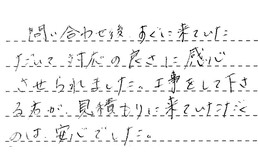 問い合わせ後 すぐに来ていた
だいて 対応の良さに 感心
させられました。工事をして下さ
る方が、見積もりに来ていただく
のは、安心でした。